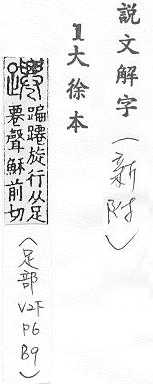 説文解字(新附)
1大徐本
躚 蹁躚旋行从足
䙴聲穌前切
(足部 V2F P6 B9)